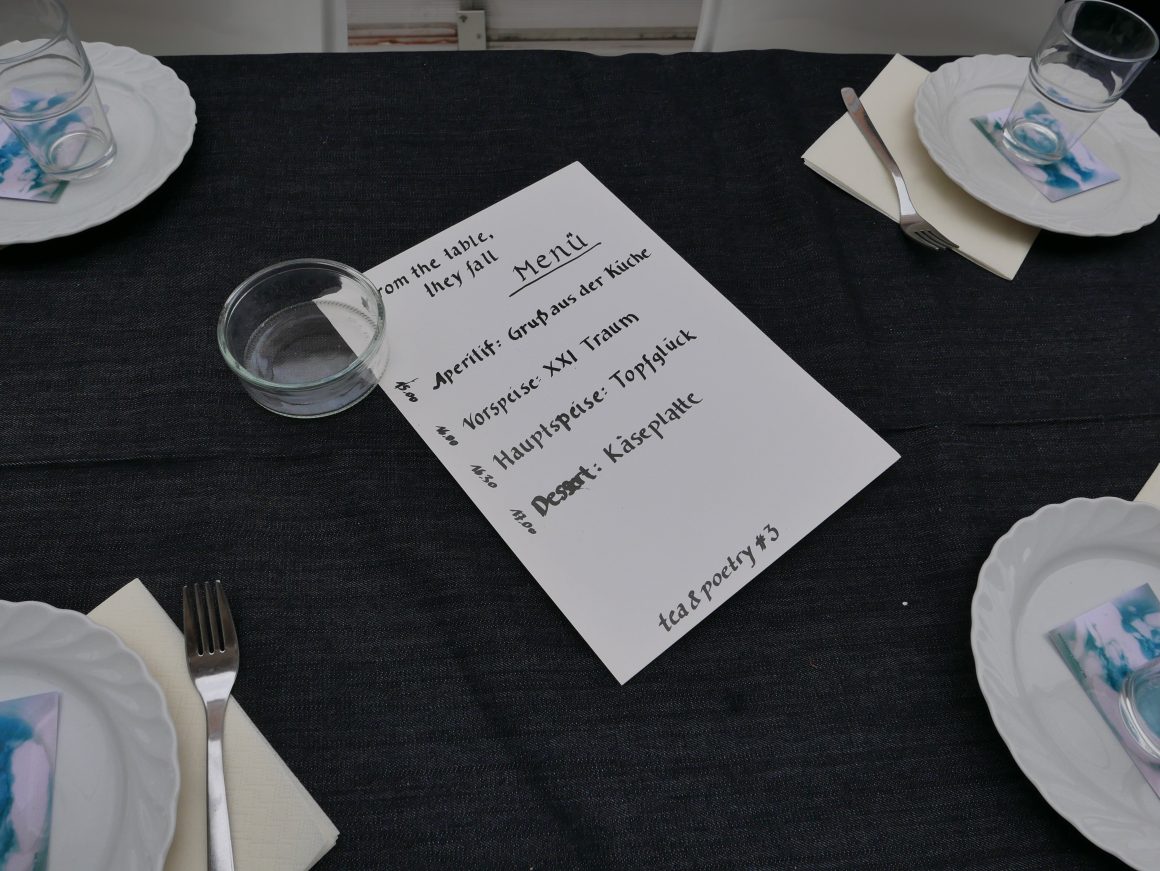 from the table,
they fall
Menü
15.00 Aperitif: Gruß aus der Küche
16.00 Vorspeise: XXI Traum
16.30 Hauptspeise: Topfglück
17.00 Dessert: Käseplatte
tea & poetry #3